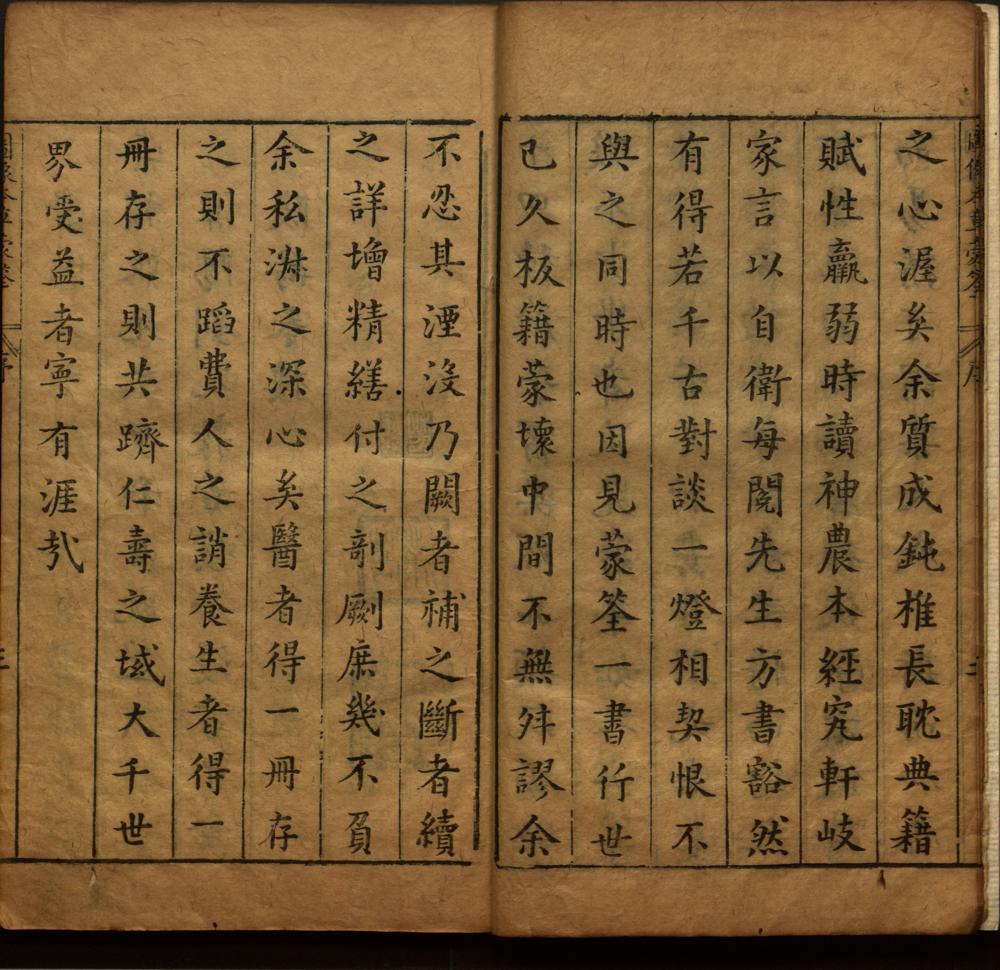 之心渥矣余質成鈍椎長耽典籍
賦性羸弱時讀神農本經究軒岐
家言以自衛每閱先生方書豁然
有得若千古對談一燈相契恨不
與之同時也因見蒙筌一書行世
已久板籍蒙壞中間不無舛謬余
不忍其湮沒乃闕者補之斷者續
之詳增精繕付之剞劂庶幾不負
余私淑之深心矣醫者得一冊存
之則不蹈費人之誚養生者得一
冊存之則共躋仁壽之域大千世
界受益者寧有涯哉